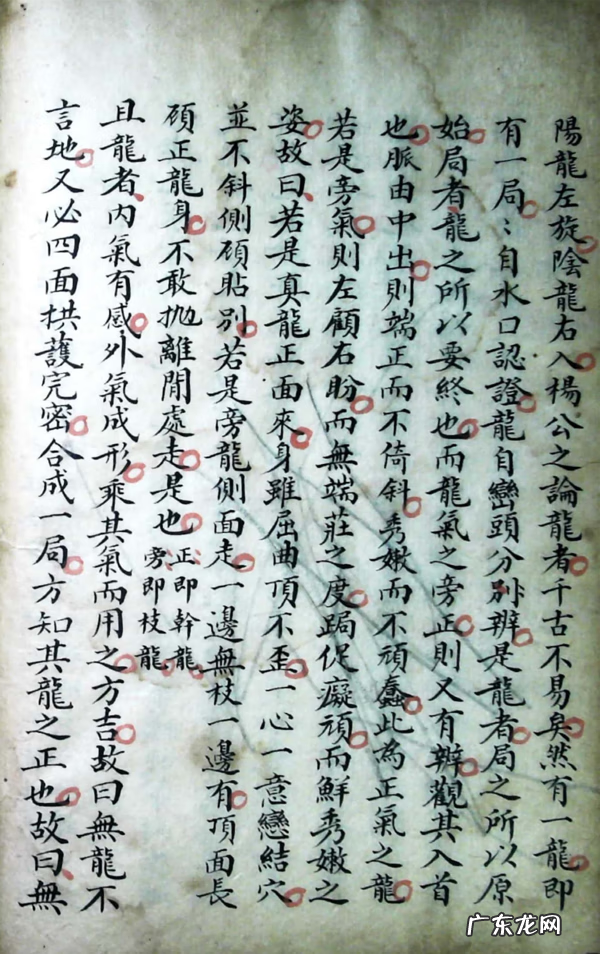 陽龍左旋陰龍右入楊公之論龍者千古不易矣然有一龍即
有一局〻自水口認證龍自巒頭分別辨是龍者局之所以原
始局者龍之所以要終也而龍氣之旁正則又有辨觀其入首
也脈由中出則端正而不倚斜秀嫩而不頑蠢此為正氣之龍
若是旁氣則左顧右盼而無端莊之度跼促癡頑而鮮秀嫩之
姿故曰若是真龍正面來身雖屈曲頂不歪一心一意戀結穴
並不斜側頎貼別若是旁龍側面走一邊無枝一邊有頂面長
頎正龍身不敢拋離閒處走是也正即幹龍
旁即枝龍
且龍者內氣有感外氣成形乘其氣而用之方吉故曰無龍不
言地又必四面拱護完密合成一局方知其龍之正也故曰無
广东龙网